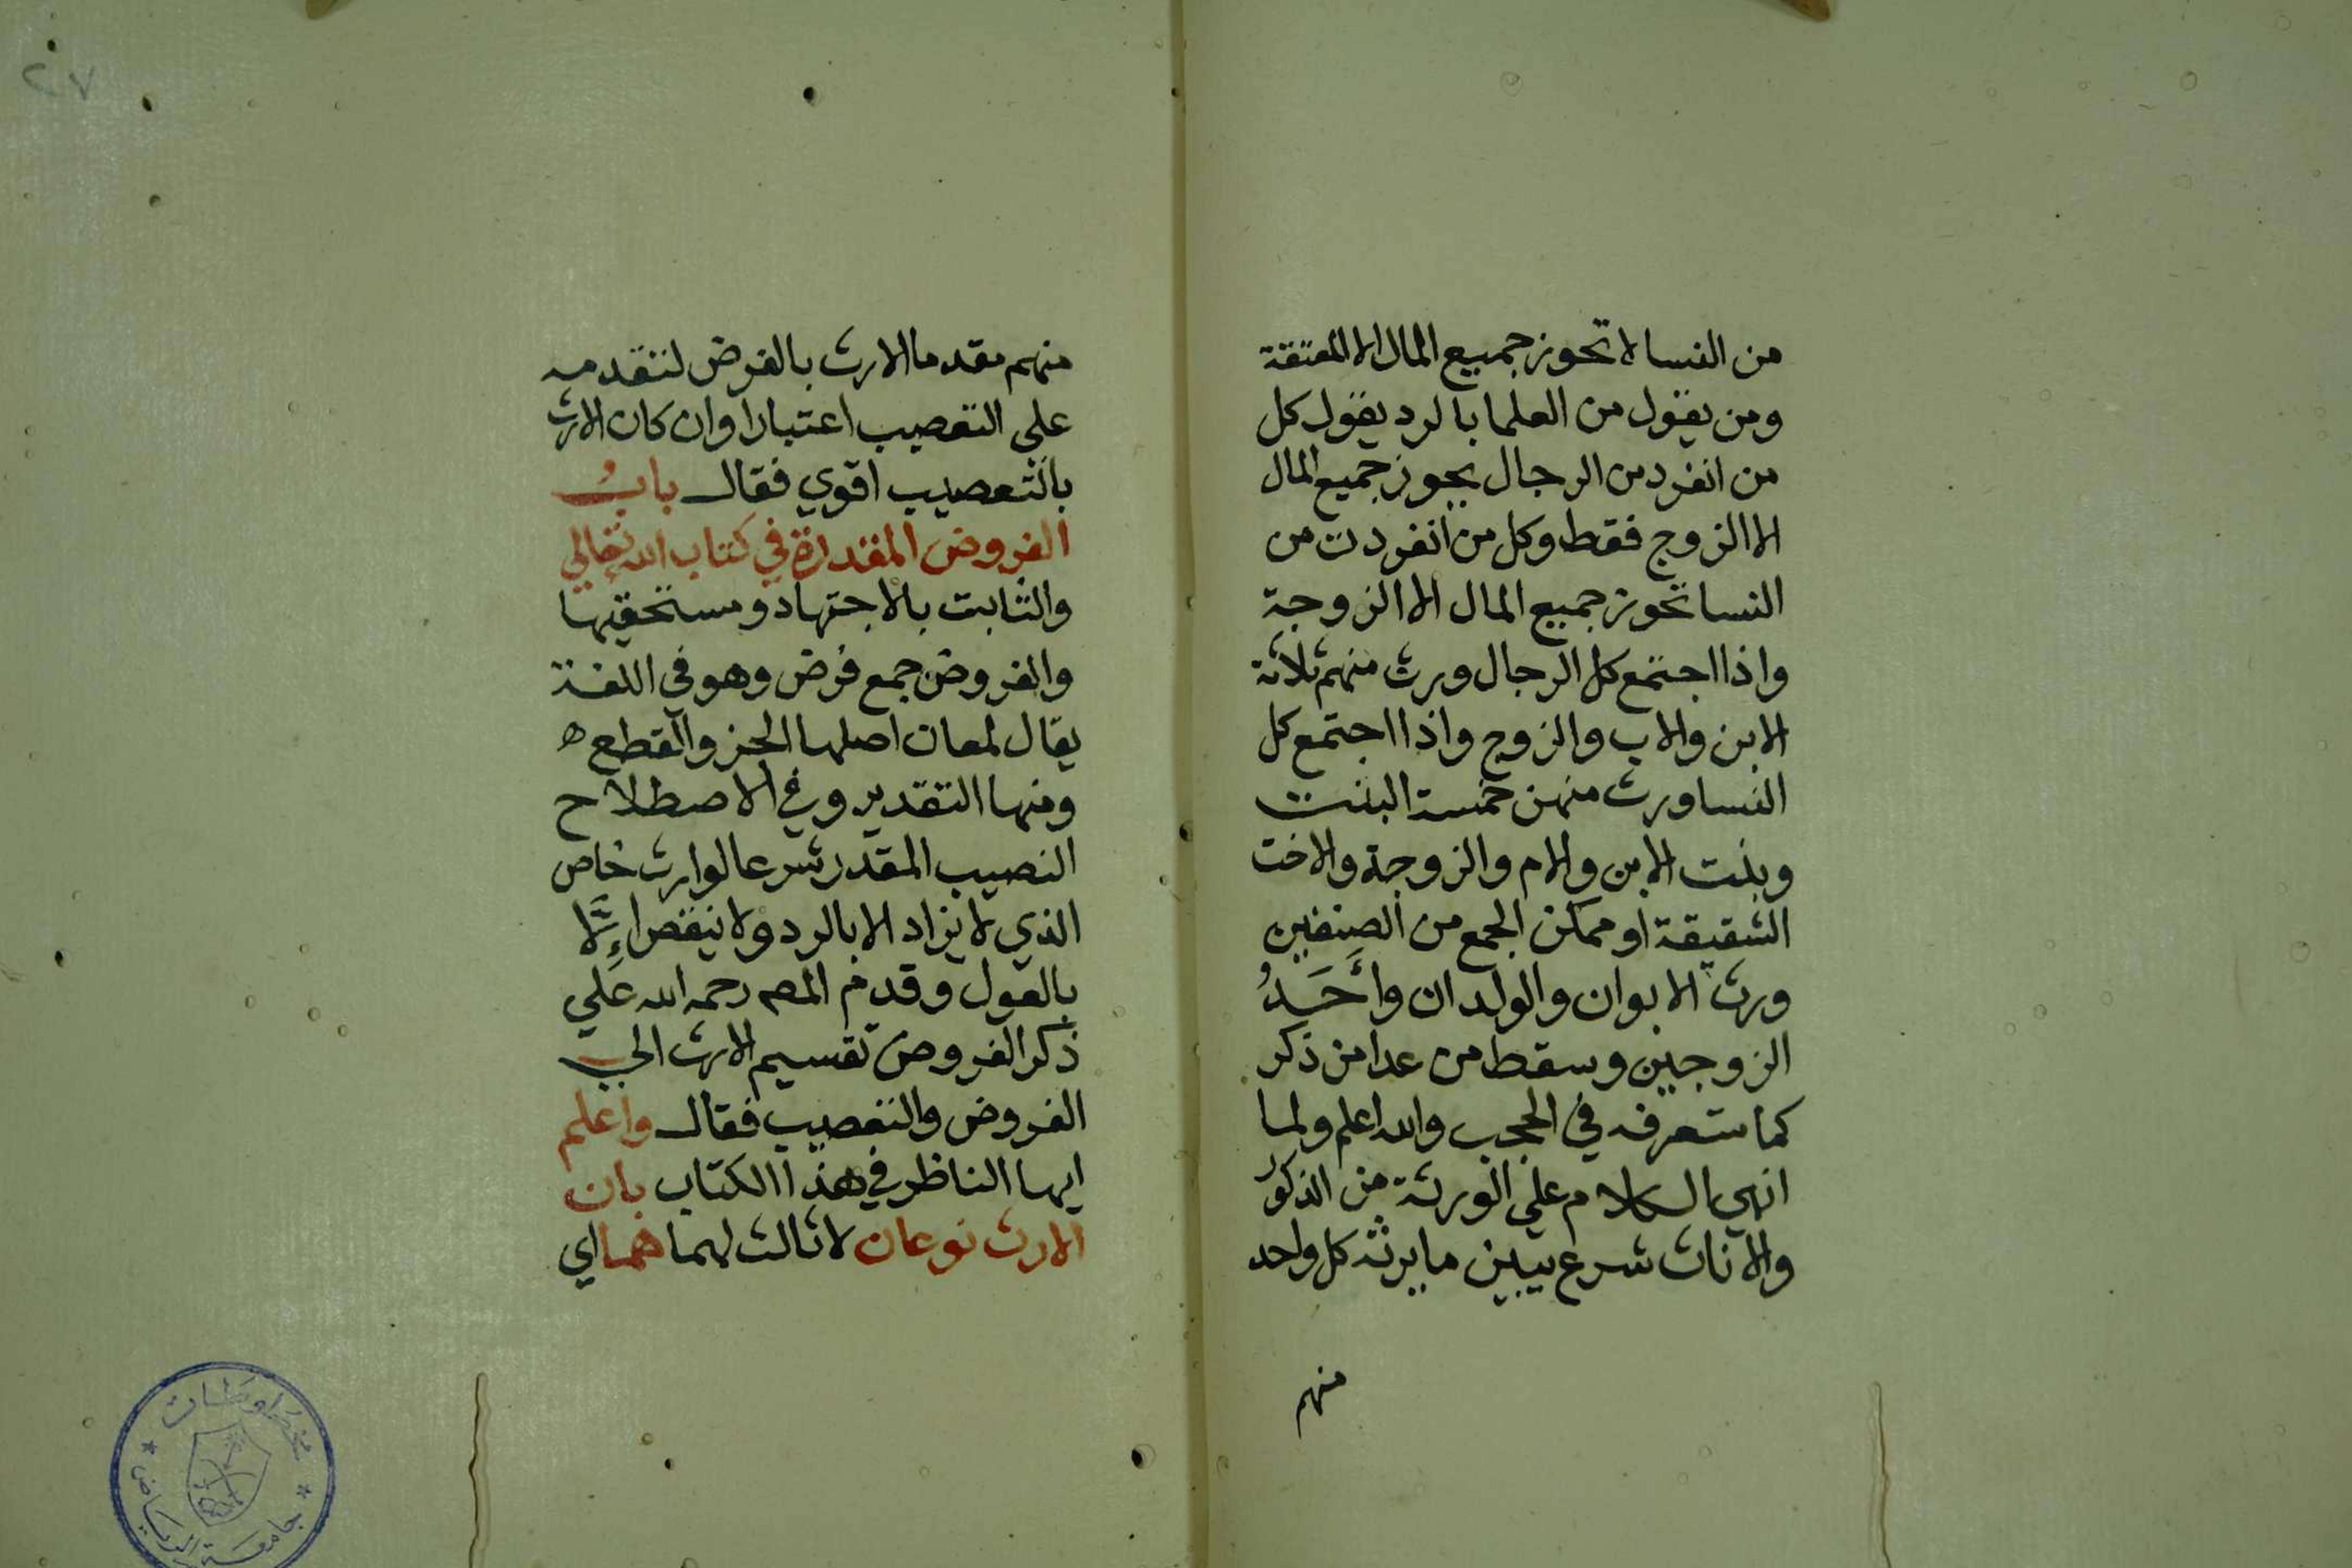 من النسا لا تحوز جميع المال الا المعتقة
ومن يقول من العلما بالرد يقول كل
من انفرد من الرجال يحوز جميع المال
الا الزوج فقط وكل من انفردت من
النسا تحوز جميع المال الا الزوجة
واذا اجتمع كل الرجال ورث منهم ثلاثة
الابن والاب والزوج واذا اجتمع كل
النسا ورث منهن خمسة البنت
وبنت الابن والام والزوجة والاخت
الشقيقة او ممكن الجمع من الصنفين
ورث الابوان والولدان وأَحَدُ
الزوجين وسقط من عدا من ذكر
كما ستعرفه في الحجب والله اعلم ولما
انهي الكلام علي الورثة من الذكور
والاناث شرع يبين ما يرثه كل واحد
منهم
٢٧
منهم مقدما الارث بالفرض لتقدمه
علي التعصيب اعتبارا وان كان الارث
بالتعصيب اقوي فقال بابُ
الفروض المقدرة في كتاب الله تعالي
والثابت بالاجتهاد ومستحقيها
والفروض جمع فرض وهو في اللغة
يقال لمعان اصلها الحز والقطع ه
ومنها التقدير وفي الاصطلاح
النصيب المقدر شرعا لوارث خاص
الذي لا يزاد الا بالرد ولا ينقص إِلَّا
بالعول وقدم المصـ رحمه الله عَلي
ذكر الفروض تقسيم الارث الي
الفروض والتعصيب فقال واعلم
ايها الناظر في هذا الكتاب بان
الارث نوعان لا ثالث لهما هما اي
مخطوطات
جامعة الرياض